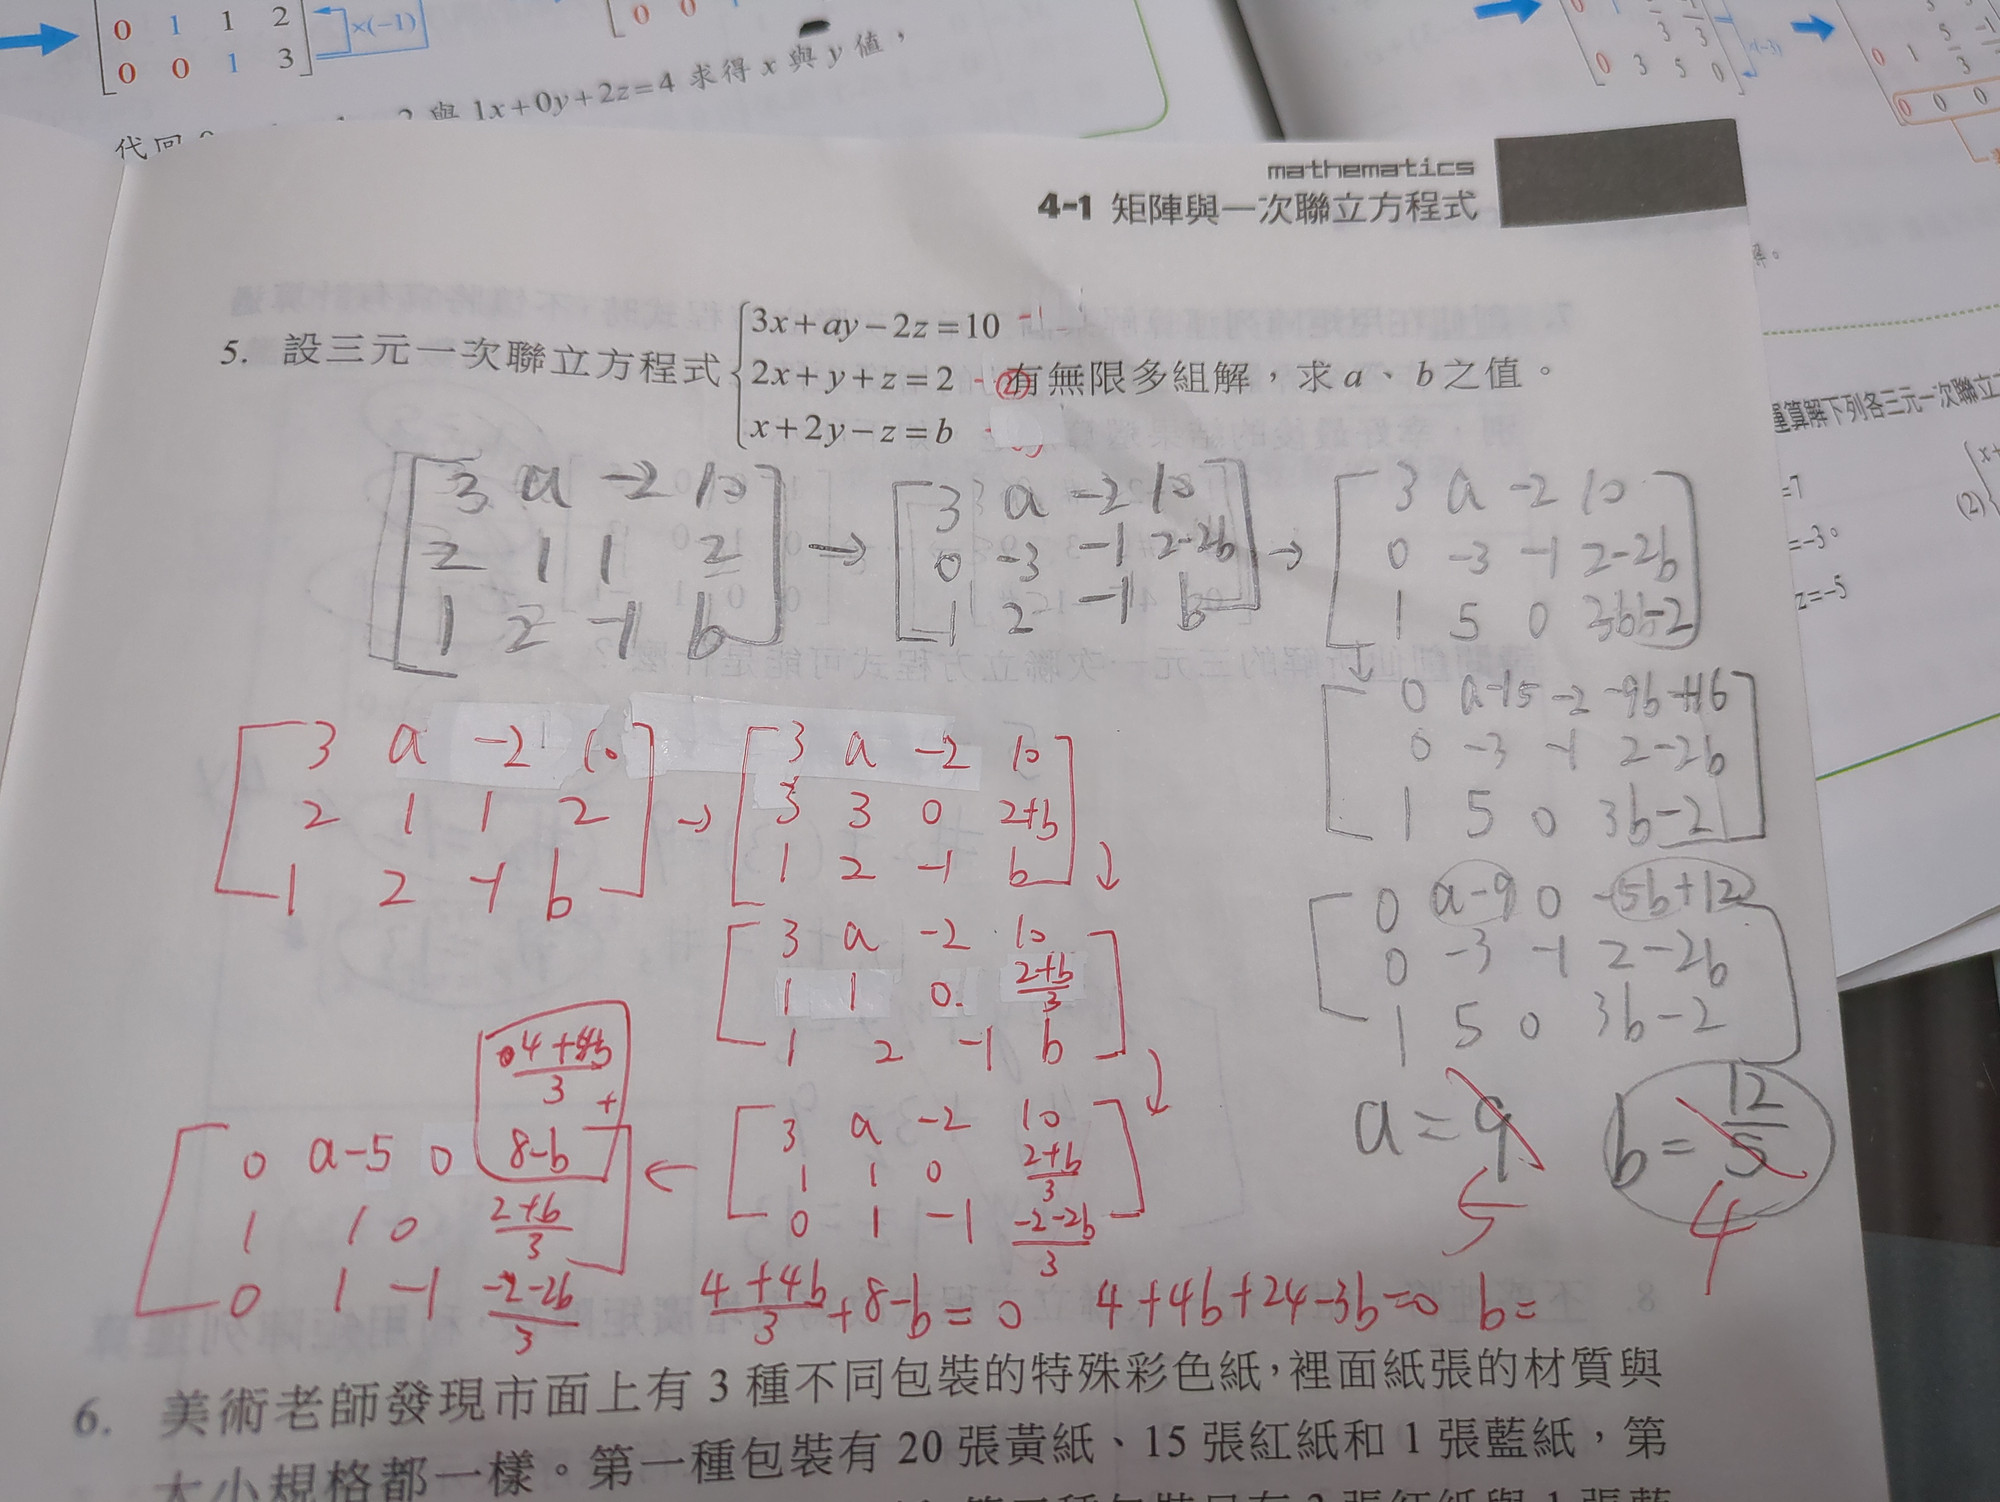 0 1 1 2
0 0 1 3
×(−1)
0 0
求得 x 與 y 值，
與 1x+0y+2z=4
代回
0 3 5 0
×(−3)
0 1 5/3
0 0 0
mathematics
4-1 矩陣與一次聯立方程式
5. 設三元一次聯立方程式
3x+ay−2z=10
2x+y+z=2
x+2y−z=b
有無限多組解，求 a、b 之值。
運算解下列各三元一次聯立
=7
=−3
z=−5
(2)
3 a −2 10
2 1 1 2
1 2 −1 b
→
3 a −2 10
0 −3 −1 2−2b
1 2 −1 b
→
3 a −2 10
0 −3 −1 2−2b
1 5 0 3b−2
↓
0 a−15 −2 −9b+16
0 −3 −1 2−2b
1 5 0 3b−2
0 a−9 0 −5b+12
0 −3 −1 2−2b
1 5 0 3b−2
a=9
5
b=12/5
4
3 a −2 10
2 1 1 2
1 2 −1 b
→
3 a −2 10
3 3 0 2+b
1 2 −1 b
↓
3 a −2 10
1 1 0 (2+b)/3
1 2 −1 b
↓
3 a −2 10
1 1 0 (2+b)/3
0 1 −1 (−2−2b)/3
←
(4+4b)/3
+
0 a−5 0 8−b
1 1 0 (2+b)/3
0 1 −1 (−2−2b)/3
(4+4b)/3+8−b=0 4+4b+24−3b=0 b=
6. 美術老師發現市面上有 3 種不同包裝的特殊彩色紙，裡面紙張的材質與
大小規格都一樣。第一種包裝有 20 張黃紙、15 張紅紙和 1 張藍紙，第